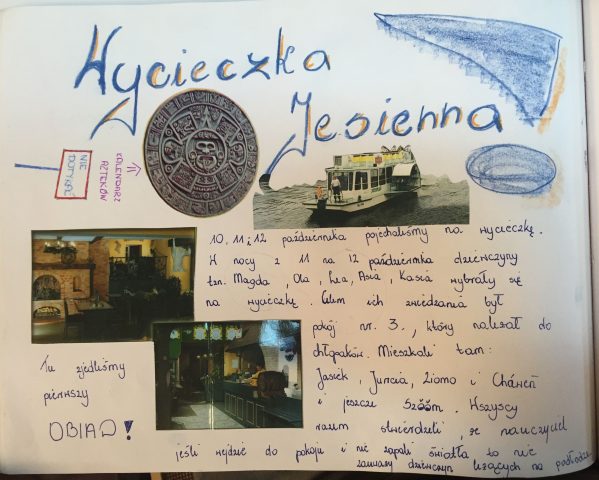 Wycieczka
Jesienna
NIE
DOTYKAĆ
KALENDARZ
AZTEKÓW
10, 11 i 12 października pojechaliśmy na wycieczkę.
W nocy z 11 na 12 października dziewczyny
tzn. Magda, Ola, Lea, Asia, Kasia wybrały się
na wycieczkę. Celem ich zwiedzania był
pokój nr. 3., który należał do
chłopaków. Mieszkali tam:
Jasiek, Juncia, Ziomo i Cháneń
i jeszcze Szööm. Wszyscy
razem stwierdzili, że nauczyciel
jeśli wejdzie do pokoju i nie zapali światła to nie
zauważy dziewczyn leżących na podłodze
Tu zjedliśmy
pierwszy
OBIAD!